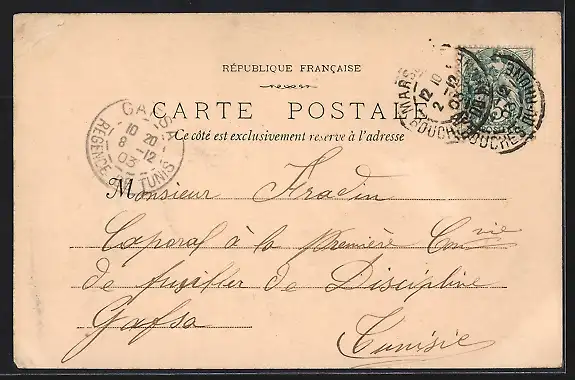 RÉPUBLIQUE FRANÇAISE
CARTE POSTALE
Ce côté est exclusivement réservé à l'adresse
GAFSA
10 20
8 -12
03
REGENCE DE TUNIS
MARS
12 10
2 -12
03
BOUCH
BOUCHES
Monsieur Fradin
Caporal à la première Cnie
de fusilier de Discipline
Gafsa
Tunisie